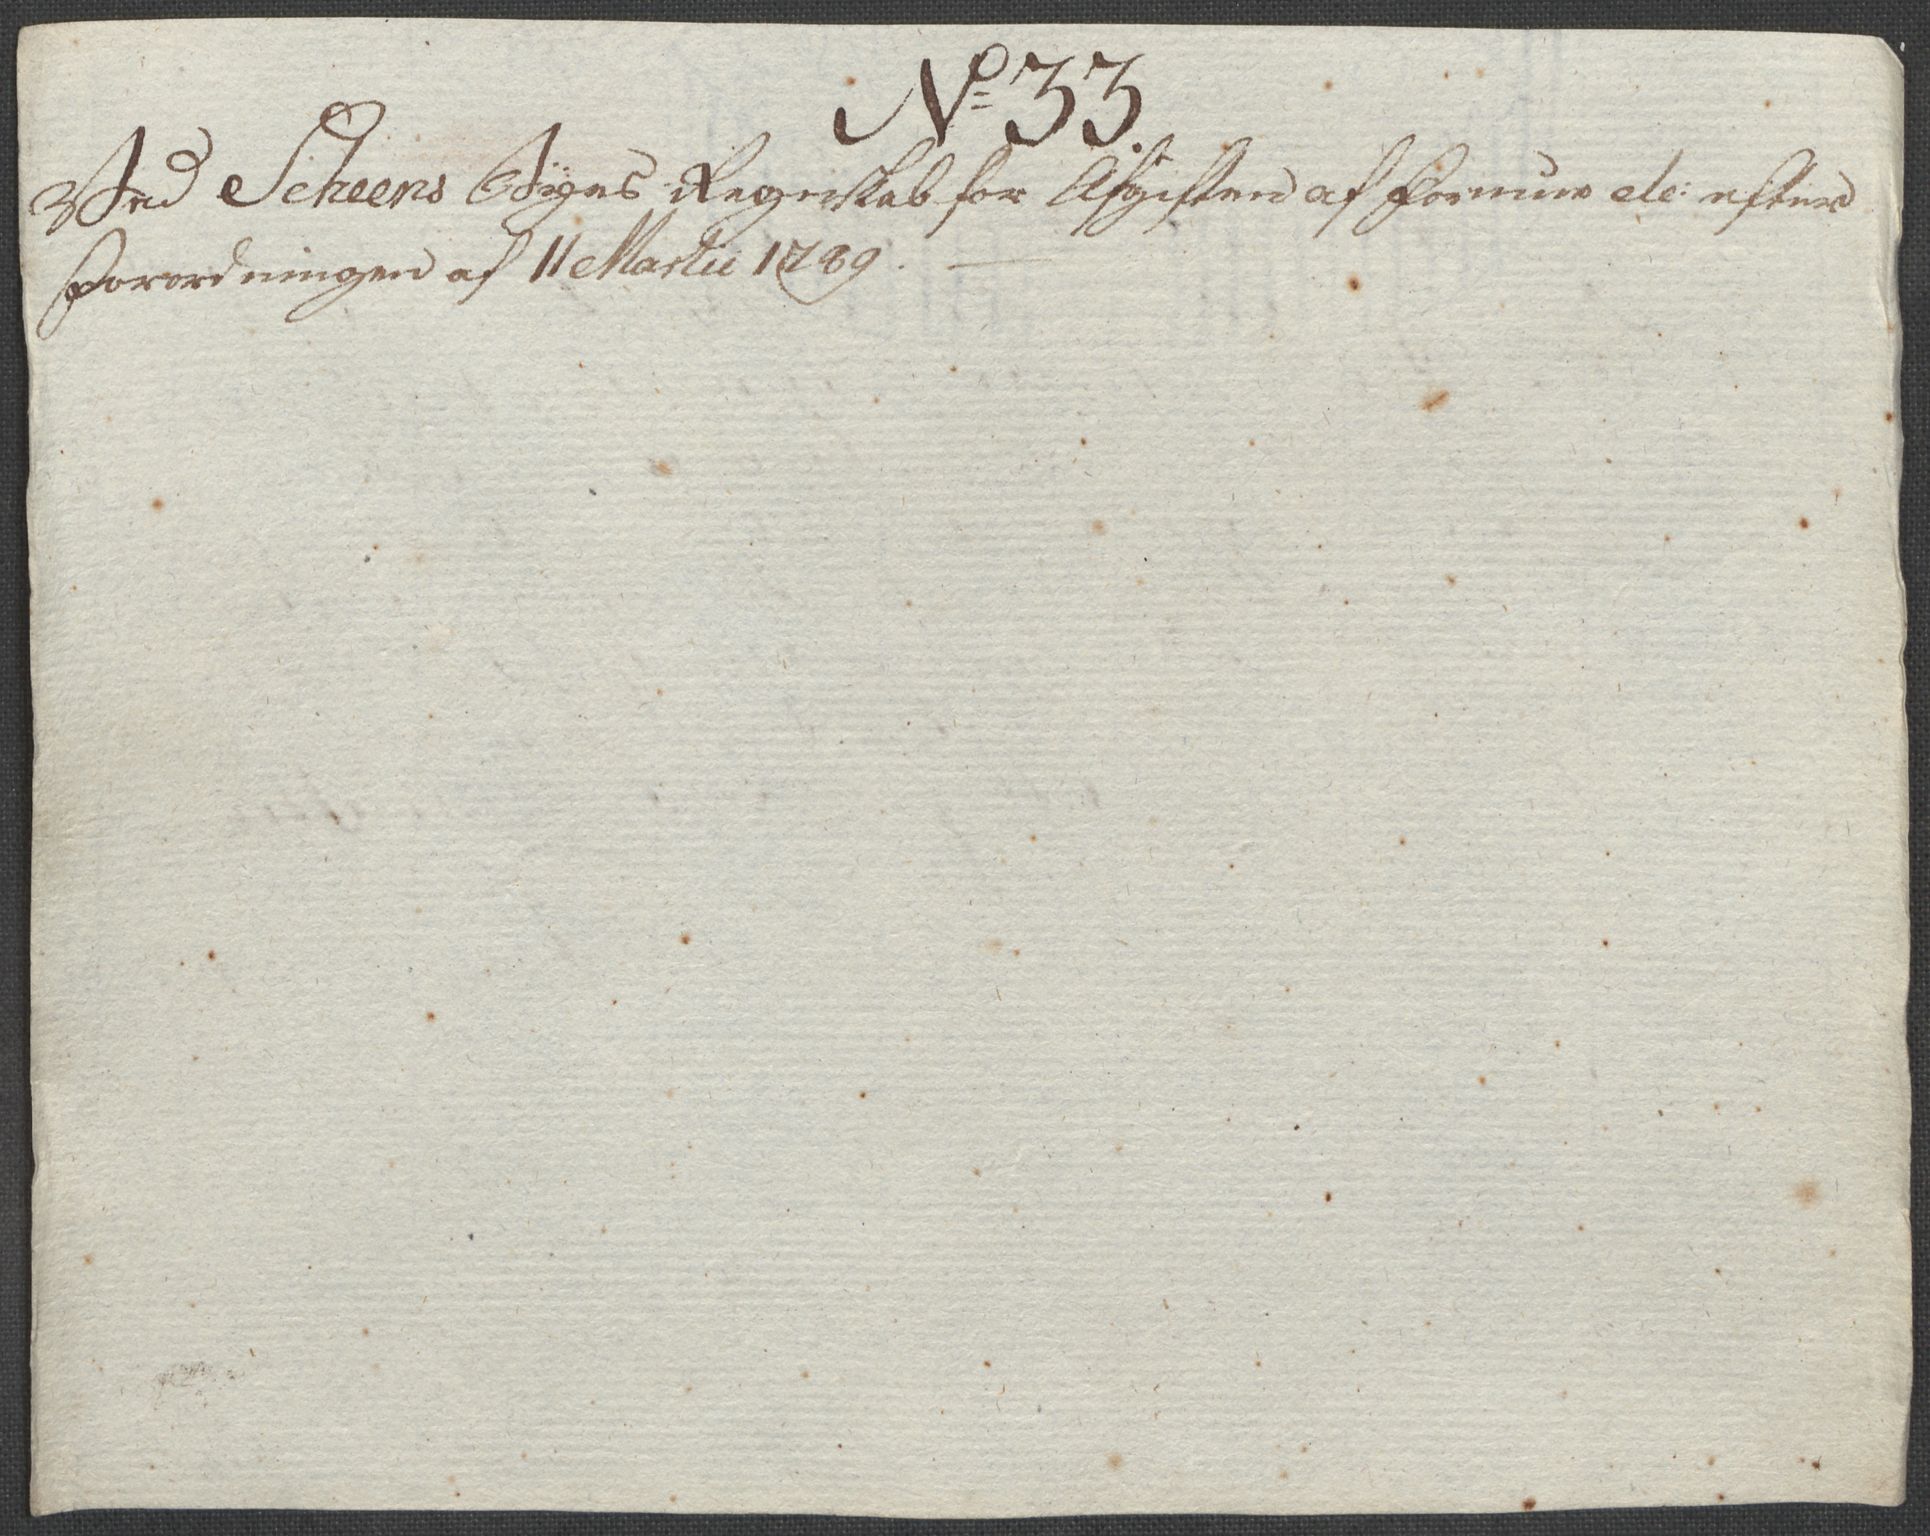 No 33.
Ved Scheens Byges Regnskab for Afgiften af Formue etc: efter
Forordningen af 11 Martii 1789.